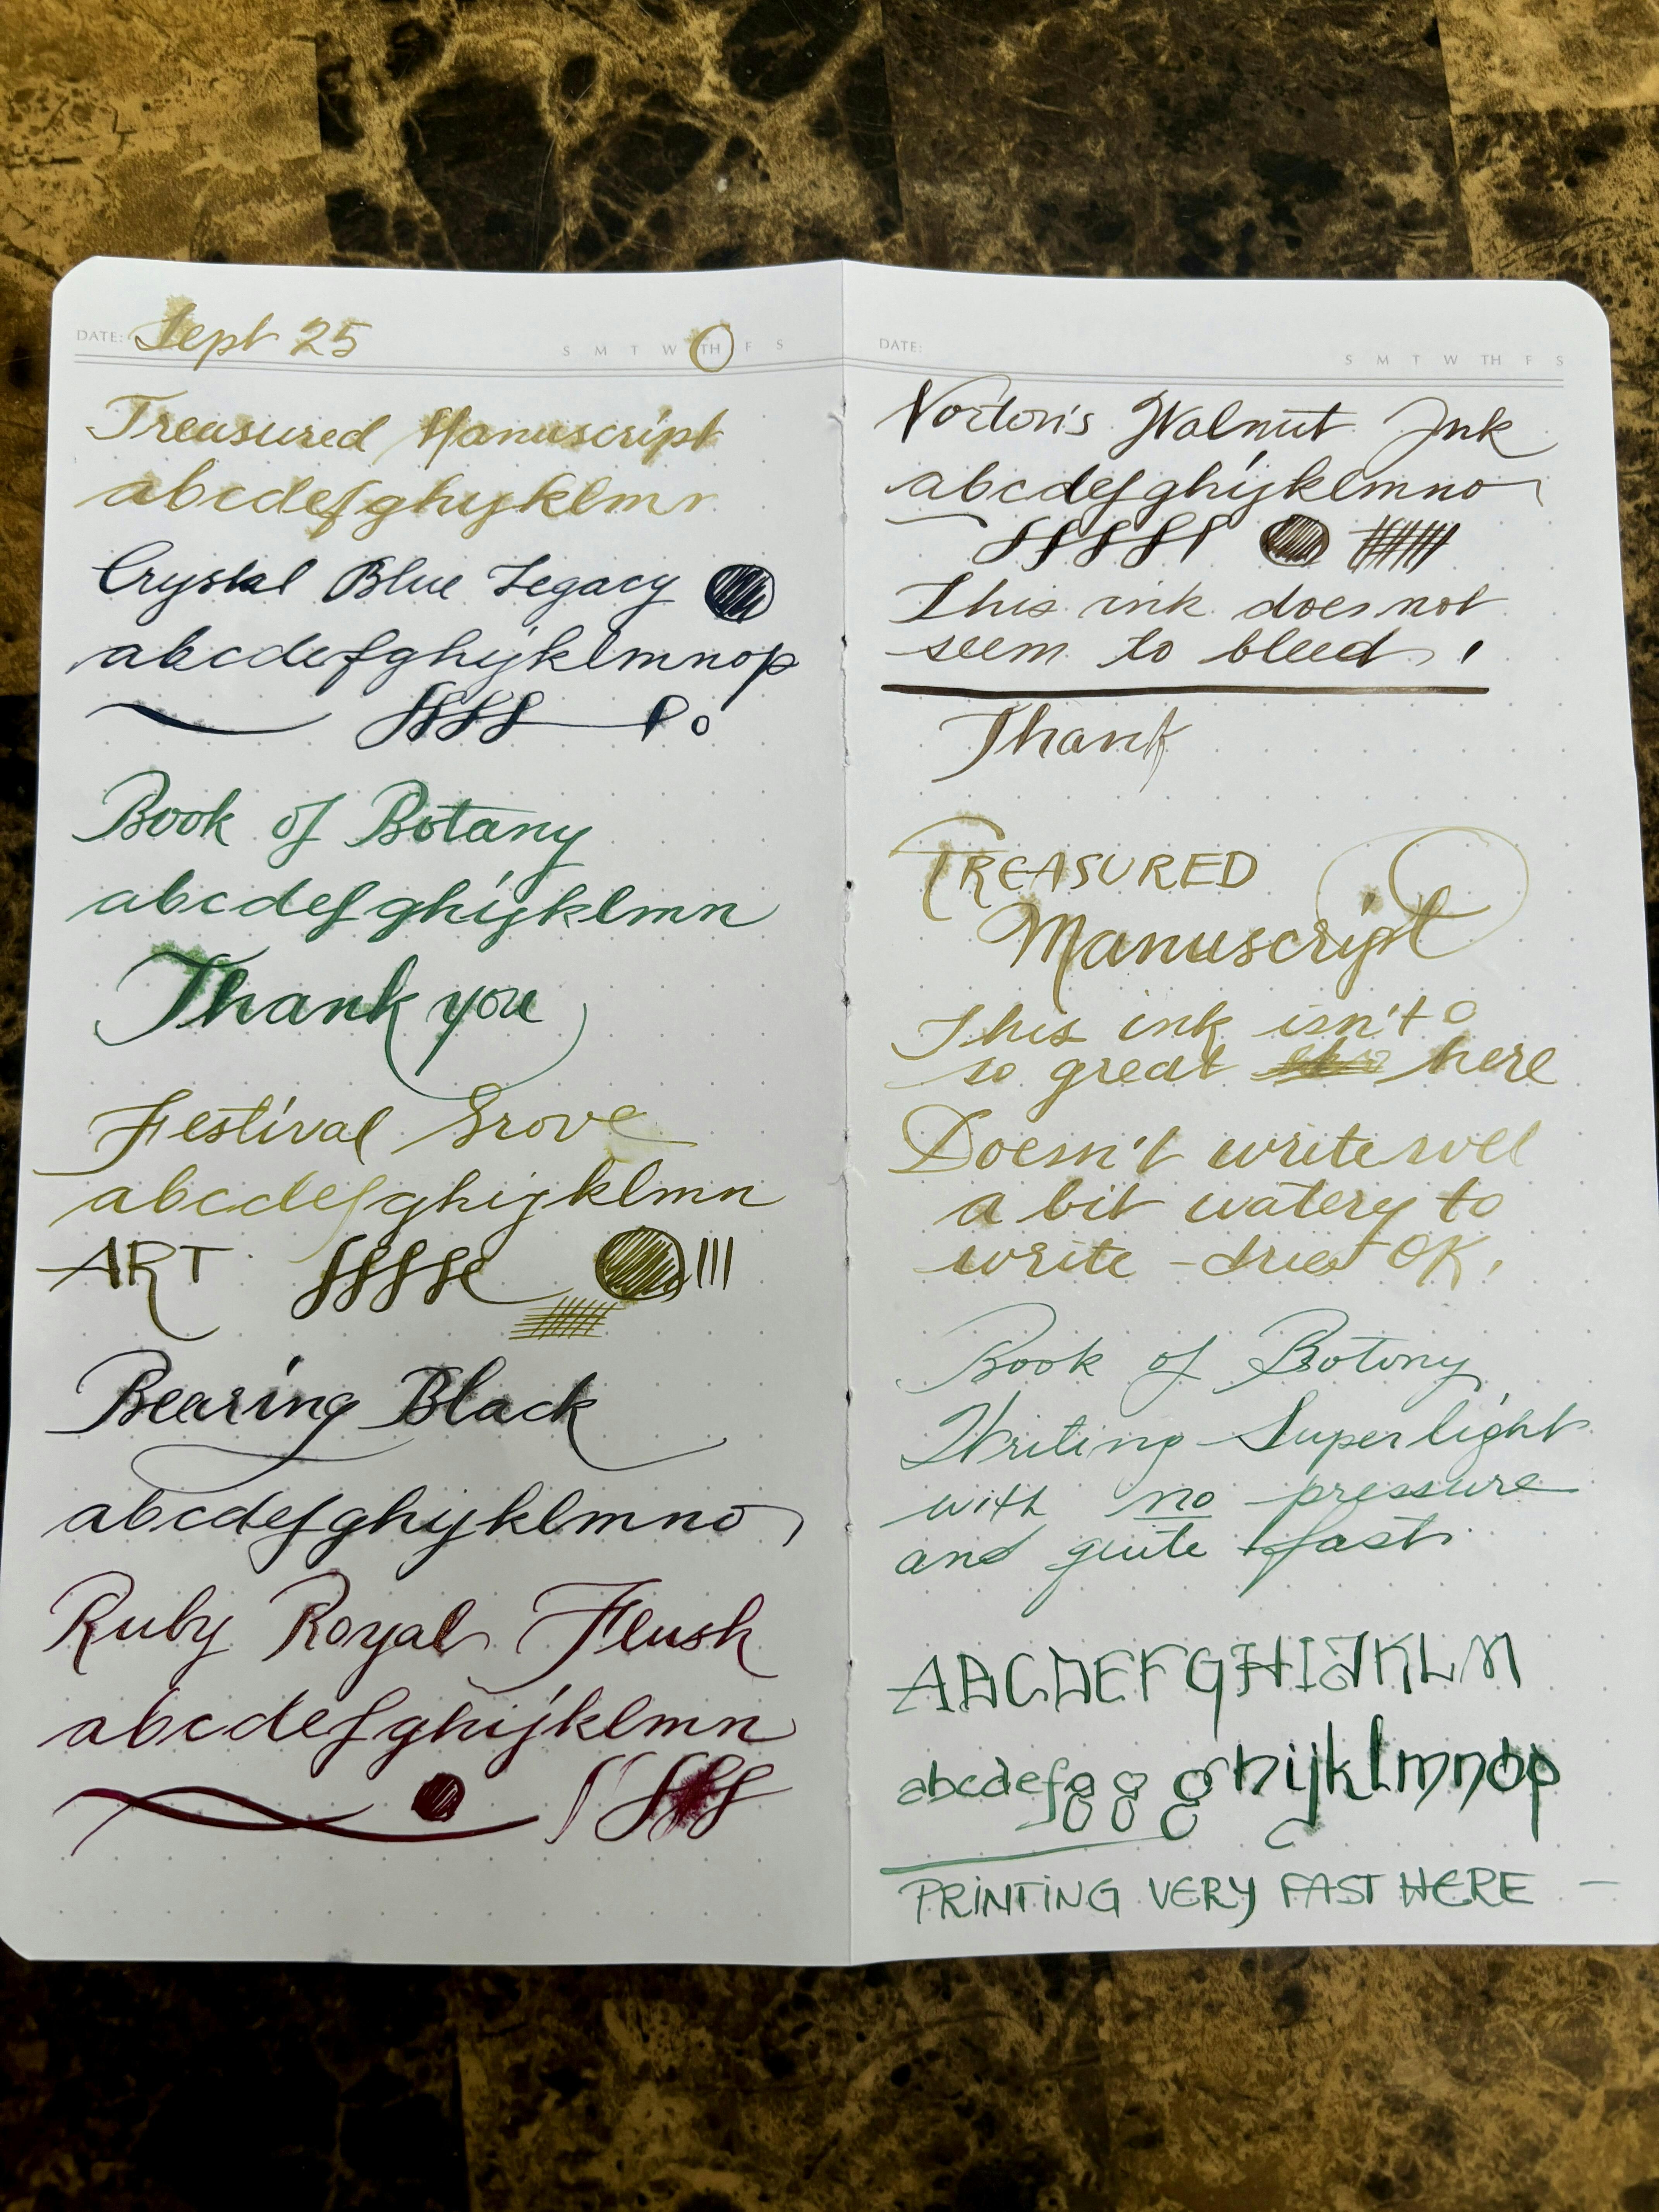 DATE: Sept 25 S M T W TH F S
Treasured Manuscript
abcdefghijklmn
Crystal Blue Legacy
abcdefghijklmnop
Book of Botany
abcdefghijklmn
Thank you
Festival Grove
abcdefghijklmn
ART
Bearing Black
abcdefghijklmno
Ruby Royal Flush
abcdefghijklmn
DATE: S M T W TH F S
Norton's Walnut Ink
abcdefghijklmno
This ink does not
seem to bleed!
Thank
TREASURED
Manuscript
This ink isn't
so great here
Doesn't write well
a bit watery to
write - dries OK.
Book of Botony
Writing Super light
with no pressure
and quite fast.
ABCDEFGHIJKLM
abcdefg g ghijklmnop
PRINTING VERY FAST HERE —